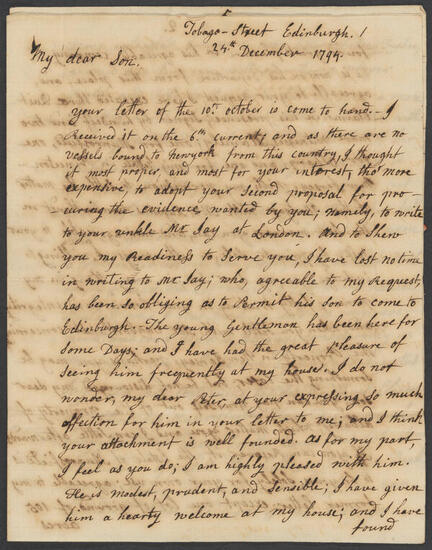 Tobago-Street Edinburgh. /
24th December 1794.
My dear Son.
your letter of the 10th october is come to hand.- I
Received it on the 6th current; and as there are no
vessels bound to Newyork from this country, I thought
it most proper, and most for your interest, tho' more
expensive, to adopt your second proposal for pro-
-curing the evidence wanted by you; namely, to write
to your unkle Mr Jay at London. And to Shew
you my Readiness to Serve you, I have lost no time
in writing to Mr Jay; who, agreeable to my Request,
has been so obliging as to Permit his son to come to
Edinburgh.- The young Gentleman has been here for
Some Days; and I have had the great pleasure of
seeing him frequently at my house. I do not
wonder, my dear Peter, at your expressing so much
affection for him in your letter to me; and I think
your attachment is well founded. as for my part,
I feel as you do; I am highly pleased with him.
He is modest, prudent, and sensible; I have given
him a hearty welcome at my house; and I have
found